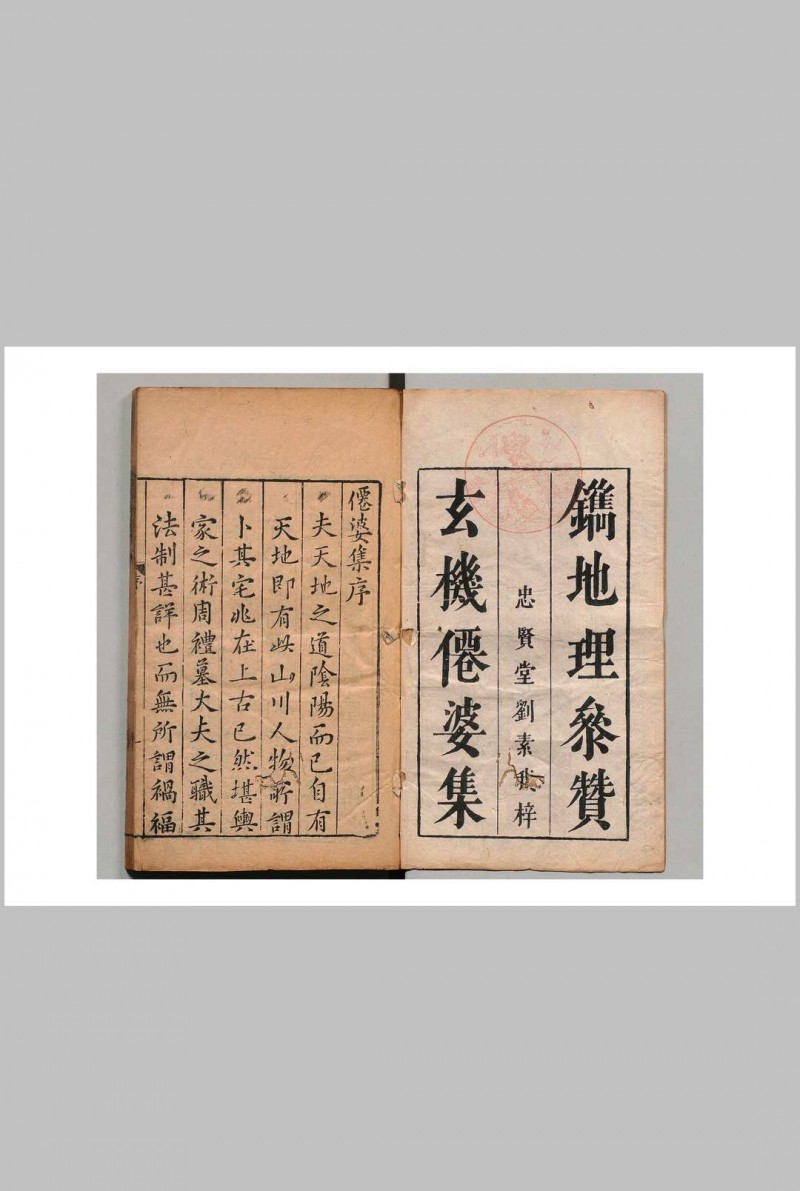 鐫地理叅贊
忠賢堂劉素我梓
玄機僊婆集
僊婆集序
夫天地之道陰陽而已自有
天地即有此山川人物所謂
卜其宅兆在上古已然堪輿
家之術周禮墓大夫之職其
法制甚詳也而無所謂禍福
序